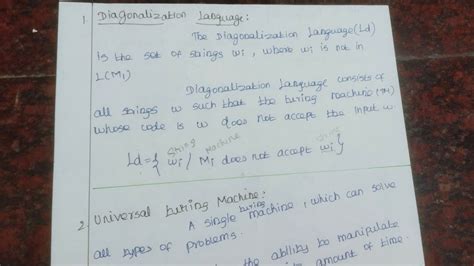 1. Diagonalization Language:
The Diagonalization Language (Ld)
is the set of strings wi, where wi is not in
L(Mi)
Diagonalization Language consists of
all strings w such that the turing machine (M)
whose code is w does not accept the input w.
String Machine
Ld = { wi / Mi does not accept wi }
2. Universal turing Machine:
A single turing machine, which can solve
all types of problems.
the ability to manipulate
amount of time.